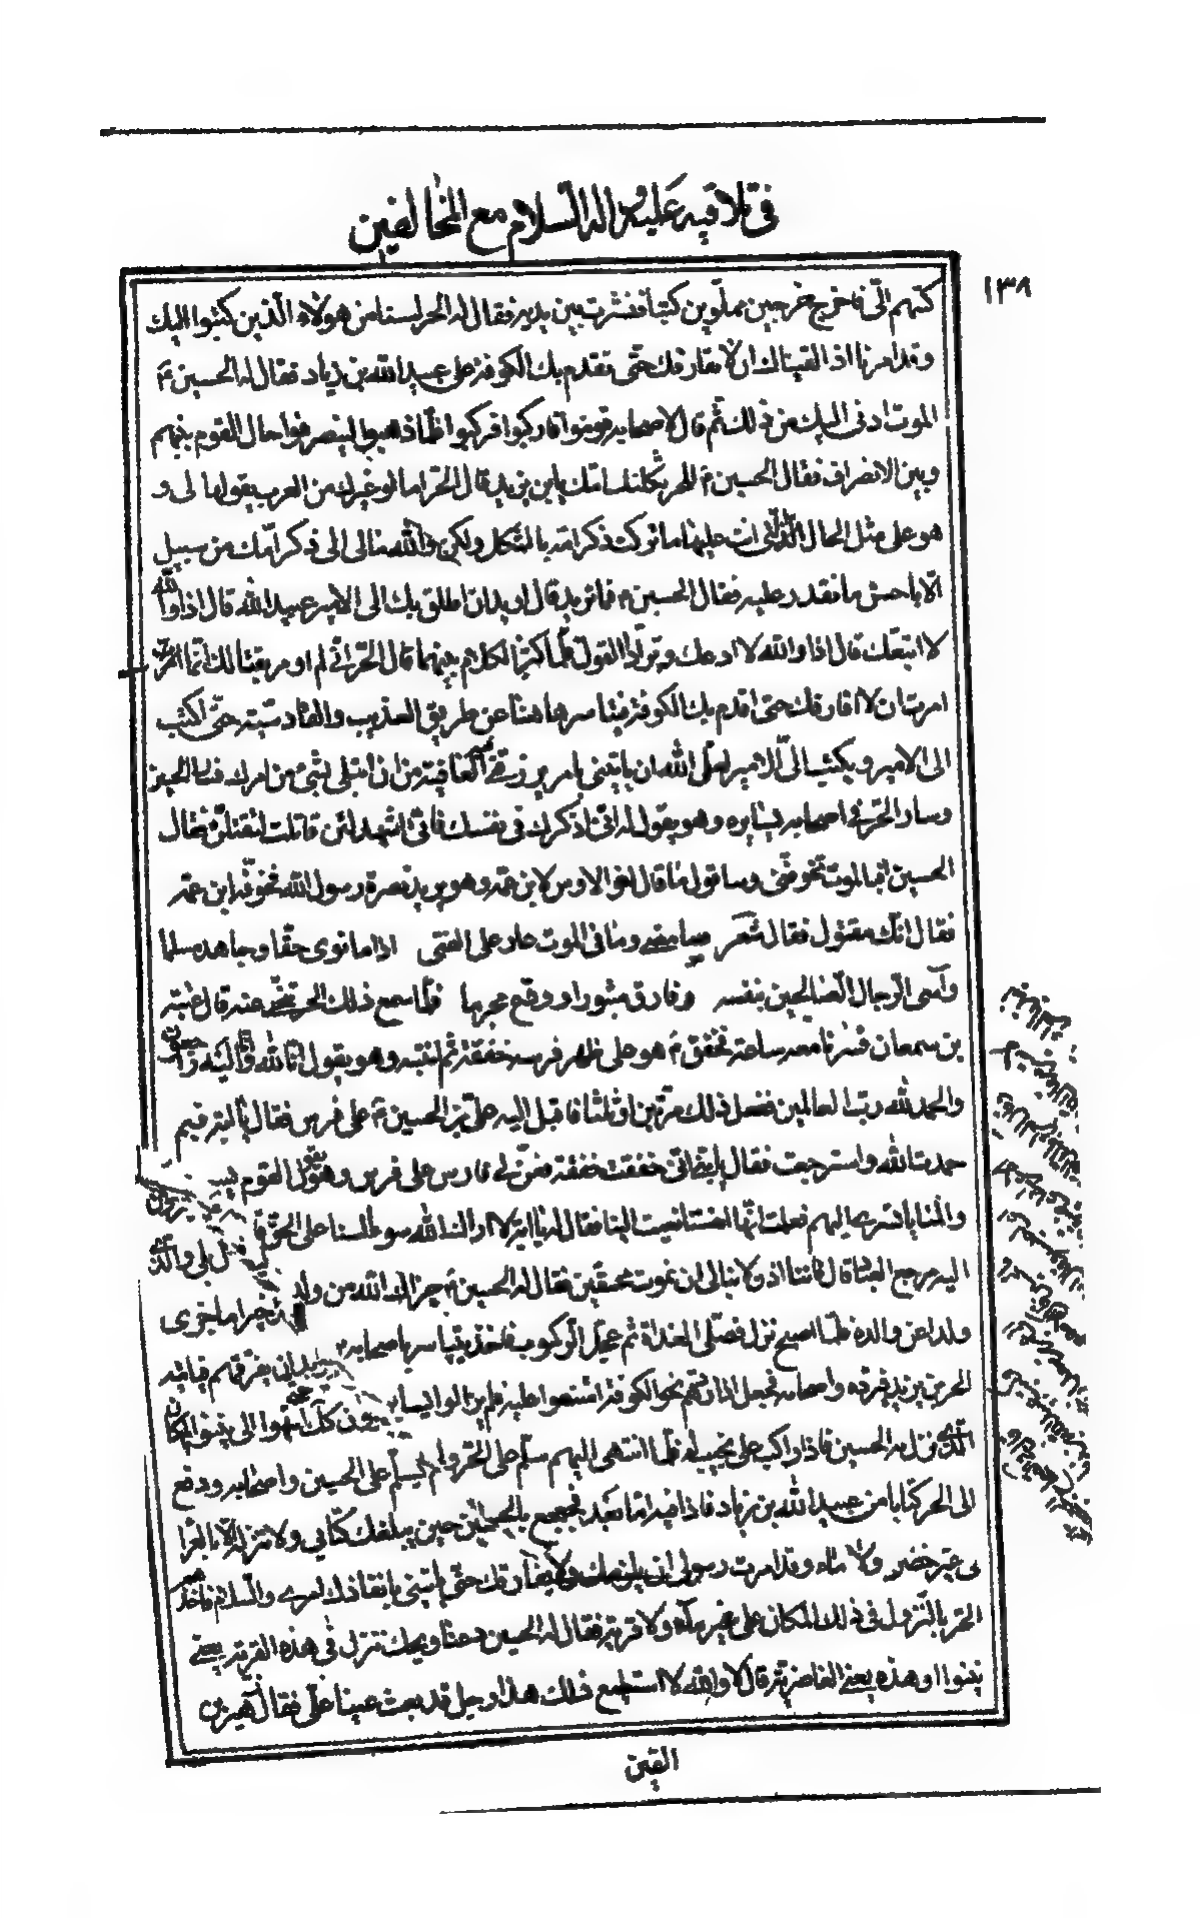 في تلاقيه عليه واله السلام مع المخالفين
١٣٨
كتبهم الىّ فاخرج خرجين مملوين كتبا فنشرت بين يديه فقال له الحر لسنا من هولاء الذين كتبوا اليك
وقد امرنا اذا لقيناك ان لا نفارقك حتى نقدم بك الكوفة على عبيد الله بن زياد فقال له الحسين ع
الموت ادنى اليك من ذلك ثم قال لاصحابه قوموا فاركبوا فركبوا فلما ذهبوا لينصرفوا حال القوم بينهم
وبين الانصراف فقال الحسين ع للحر ثكلتك امك يابن يزيد قال الحر اما لو غيرك من العرب يقولها لى و
هو على مثل الحال التى انت عليها ما تركت ذكر امه بالثكل ولكن والله مالى الى ذكر امك من سبيل
الا باحسن ما نقدر عليه فقال الحسين ع فما تريد قال اريد ان انطلق بك الى الامير عبيد الله قال اذا والله
لا اتبعك قال اذا والله لا ادعك وترادا القول فلما كثر الكلام بينهما قال الحر انى لم اومر بقتالك انما
امرت ان لا افارقك حتى اقدم بك الكوفة فتياسر هاهنا عن طريق العذيب والقادسية حتى اكتب
الى الامير ويكتب الىّ الامير لعل الله ان ياتينى بامر يرزقنى العافية من ان ابتلى بشئ من امرك فسار الحسين
وسار الحر فى اصحابه يسايره وهو يقول له انى اذكرك فى نفسك فانى اشهد لئن قاتلت لتقتلن فقال
الحسين ابالموت تخوفنى وساقول ما قال اخو الاوس لابن عمه وهو يريد نصرة رسول الله فخوفه ابن عمه
فقال انك مقتول فقال شعر سامضى وما فى الموت عار على الفتى اذا ما نوى حقا وجاهد مسلما
وآسى الرجال الصالحين بنفسه وفارق مثبورا وودع مجرما فلما سمع ذلك الحر تنحى عنه قال عقبة
بن سمعان فسرنا معه ساعة فخفق ع وهو على ظهر فرسه خفقة ثم انتبه وهو يقول انا لله وانا اليه راجعون
والحمد لله رب العالمين ففعل ذلك مرتين او ثلثا فاقبل اليه على بن الحسين ع على فرس فقال يا ابه فيم
حمدت الله واسترجعت فقال يا بنى انى خفقت خفقة فعن لى فارس على فرس وهو يقول القوم يسيرون
والمنايا تسير اليهم فعلمت انها انفسنا نعيت الينا فقال له يا ابه لا اراك الله سوء السنا على الحق قال بلى والذى
اليه مرجع العباد قال فاننا اذا لا نبالى ان نموت محقين فقال له الحسين ع جزاك الله من ولد خير ما جزى
ولدا عن والده فلما اصبح نزل فصلى الغداة ثم عجل الركوب فاخذ يتياسر باصحابه يريد ان يفرقهم فياتيه
الحر بن يزيد فيرده واصحابه فجعل اذا ردهم نحو الكوفة امتنعوا عليه فلم يزالوا يتياسرون كذلك حتى انتهوا الى نينوا المكان
الذى نزل به الحسين فاذا راكب على نجيب له فلما انتهى اليهم سلم على الحر ولم يسلم على الحسين واصحابه ودفع
الى الحر كتابا من عبيد الله بن زياد فاذا فيه اما بعد فجعجع بالحسين حين يبلغك كتابى ولا تنزله الا بالعرا
فى غير خضر ولا ماء وقد امرت رسولى ان يلزمك ولا يفارقك حتى ياتينى بانفاذك امرى والسلام فاخذهم
الحر بالنزول فى ذلك المكان على غير ماء ولا قرية فقال له الحسين دعنا ويحك ننزل فى هذه القرية يعنى
نينوا او هذه يعنى الغاضرية قال لا والله لا استطيع ذلك هذا رجل قد بعث عينا علىّ فقال زهير بن
القين